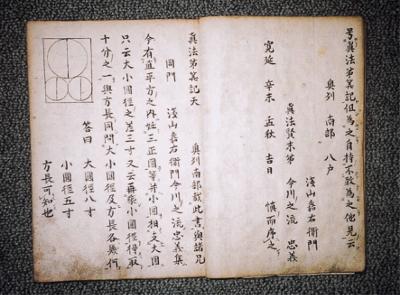 号眞法弟算記但為之自持不致為之他見云
奥列 南部 八戸
淺山嘉右衛門
眞法賢木弟 今川之流 忠義
寛延 辛未 孟秋 吉日 慎而序之
眞法弟算記天 奥列南部載此書與諸兄
同門 淺山嘉右衛門今川之流 忠義集
今有直平方之内如三正圓等并小圓相交大圓
只云大小圓徑之差三寸又云再乗小圓徑得數
十分之一與方長同問大小圓徑及方長各幾何
答曰 大圓徑八寸
小圓徑五寸
方長可知也